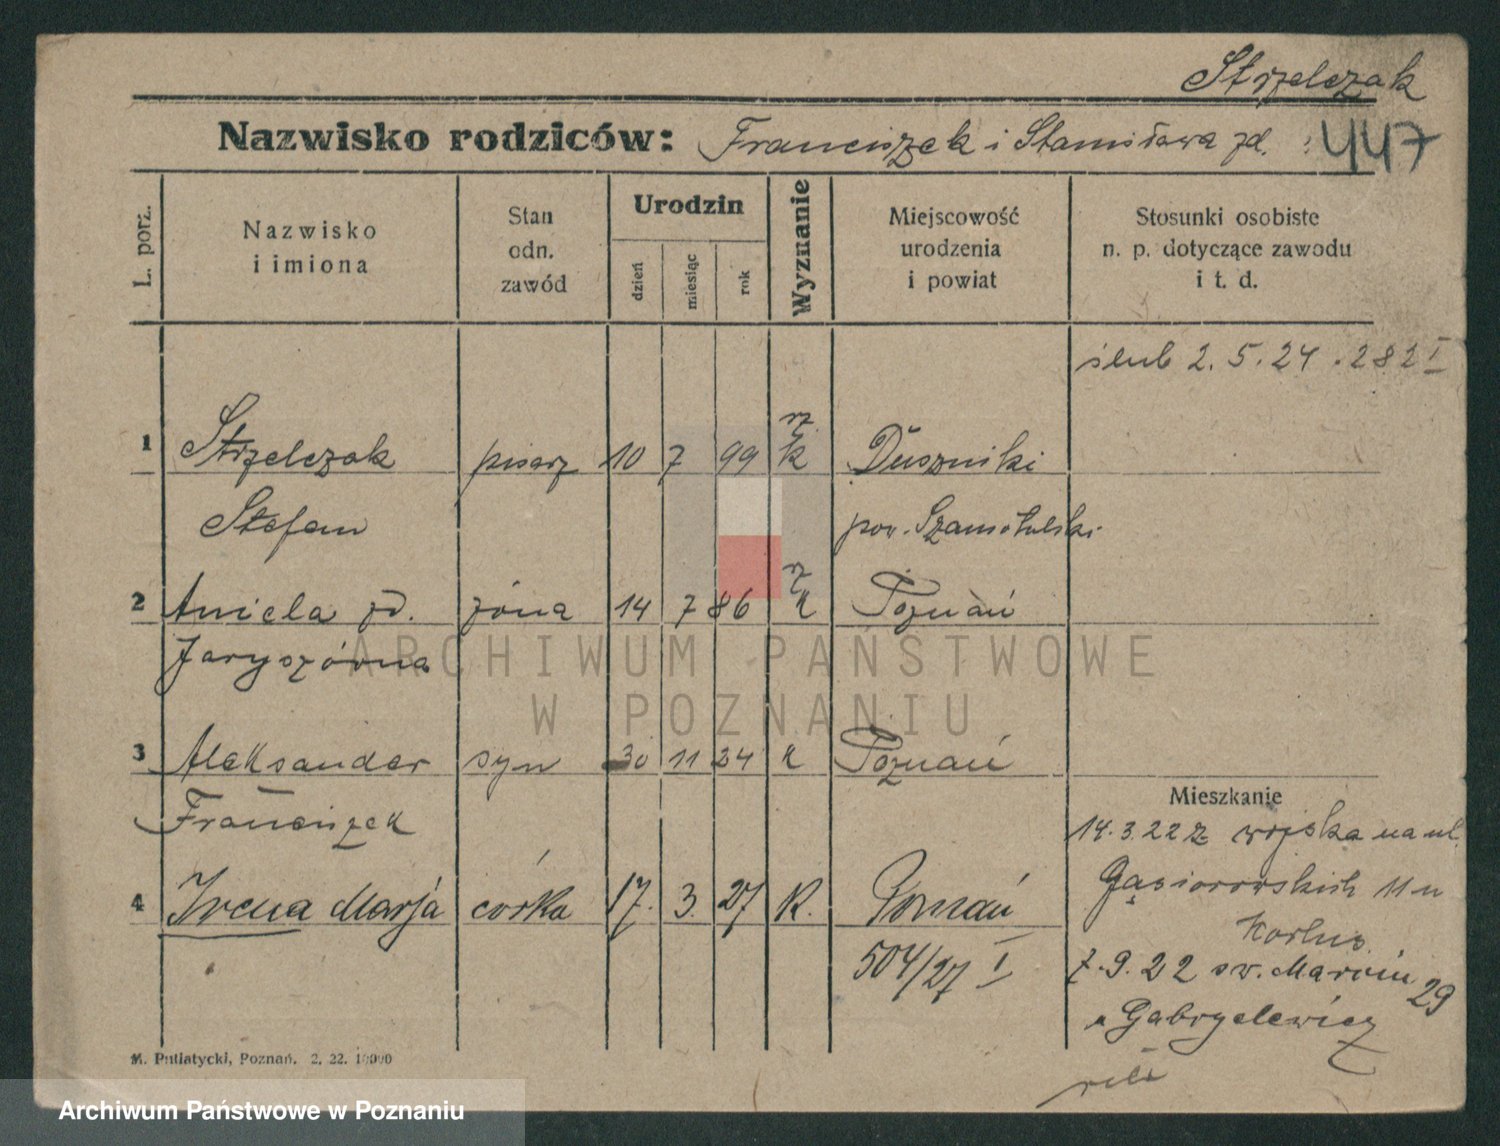 Strzelczak
Nazwisko rodziców: Franciszek i Stanisława zd. 447
L. porz.
Nazwisko i imiona
Stan odn. zawód
Urodzin
dzień
miesiąc
rok
Wyznanie
Miejscowość urodzenia i powiat
Stosunki osobiste n. p. dotyczące zawodu i t. d.
ślub 2.5.24. 282 I
1 Strzelczak pisarz 10 7 99 rz. k Duszniki
Stefan pow. Szamotulski
2 Aniela zd. żona 14 7 86 rz. k Poznań
Jaryszówna
ARCHIWUM PAŃSTWOWE
W POZNANIU
3 Aleksander syn 30 11 24 k Poznań
Franciszek
Mieszkanie
14.3.22 z wojska na ul.
4 Irena Marja córka 17. 3. 27 K. Poznań
Gąsiorowskich 11 u
504/27 I
7.9.22 św. Marcin 29
u Gabryelewicz
M. Putiatycki, Poznań. 2. 22. 10000
Archiwum Państwowe w Poznaniu